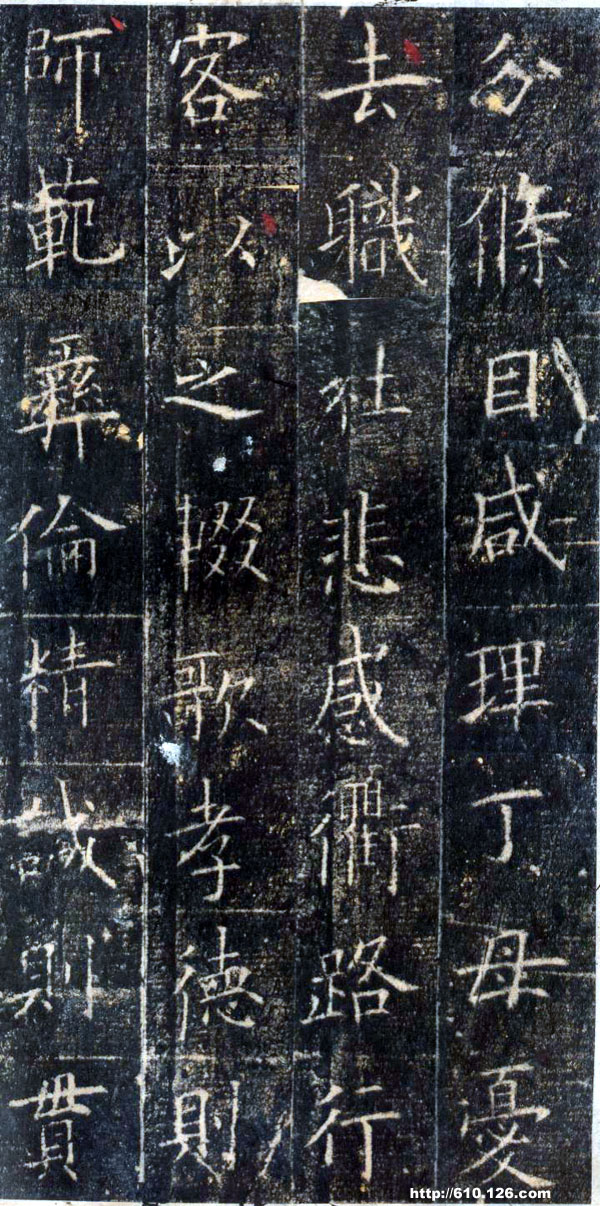 分條目咸理丁母憂
去職社悲感衢路行
客以之輟歌孝德則
師範彝倫精誠則貫
http://610.126.com